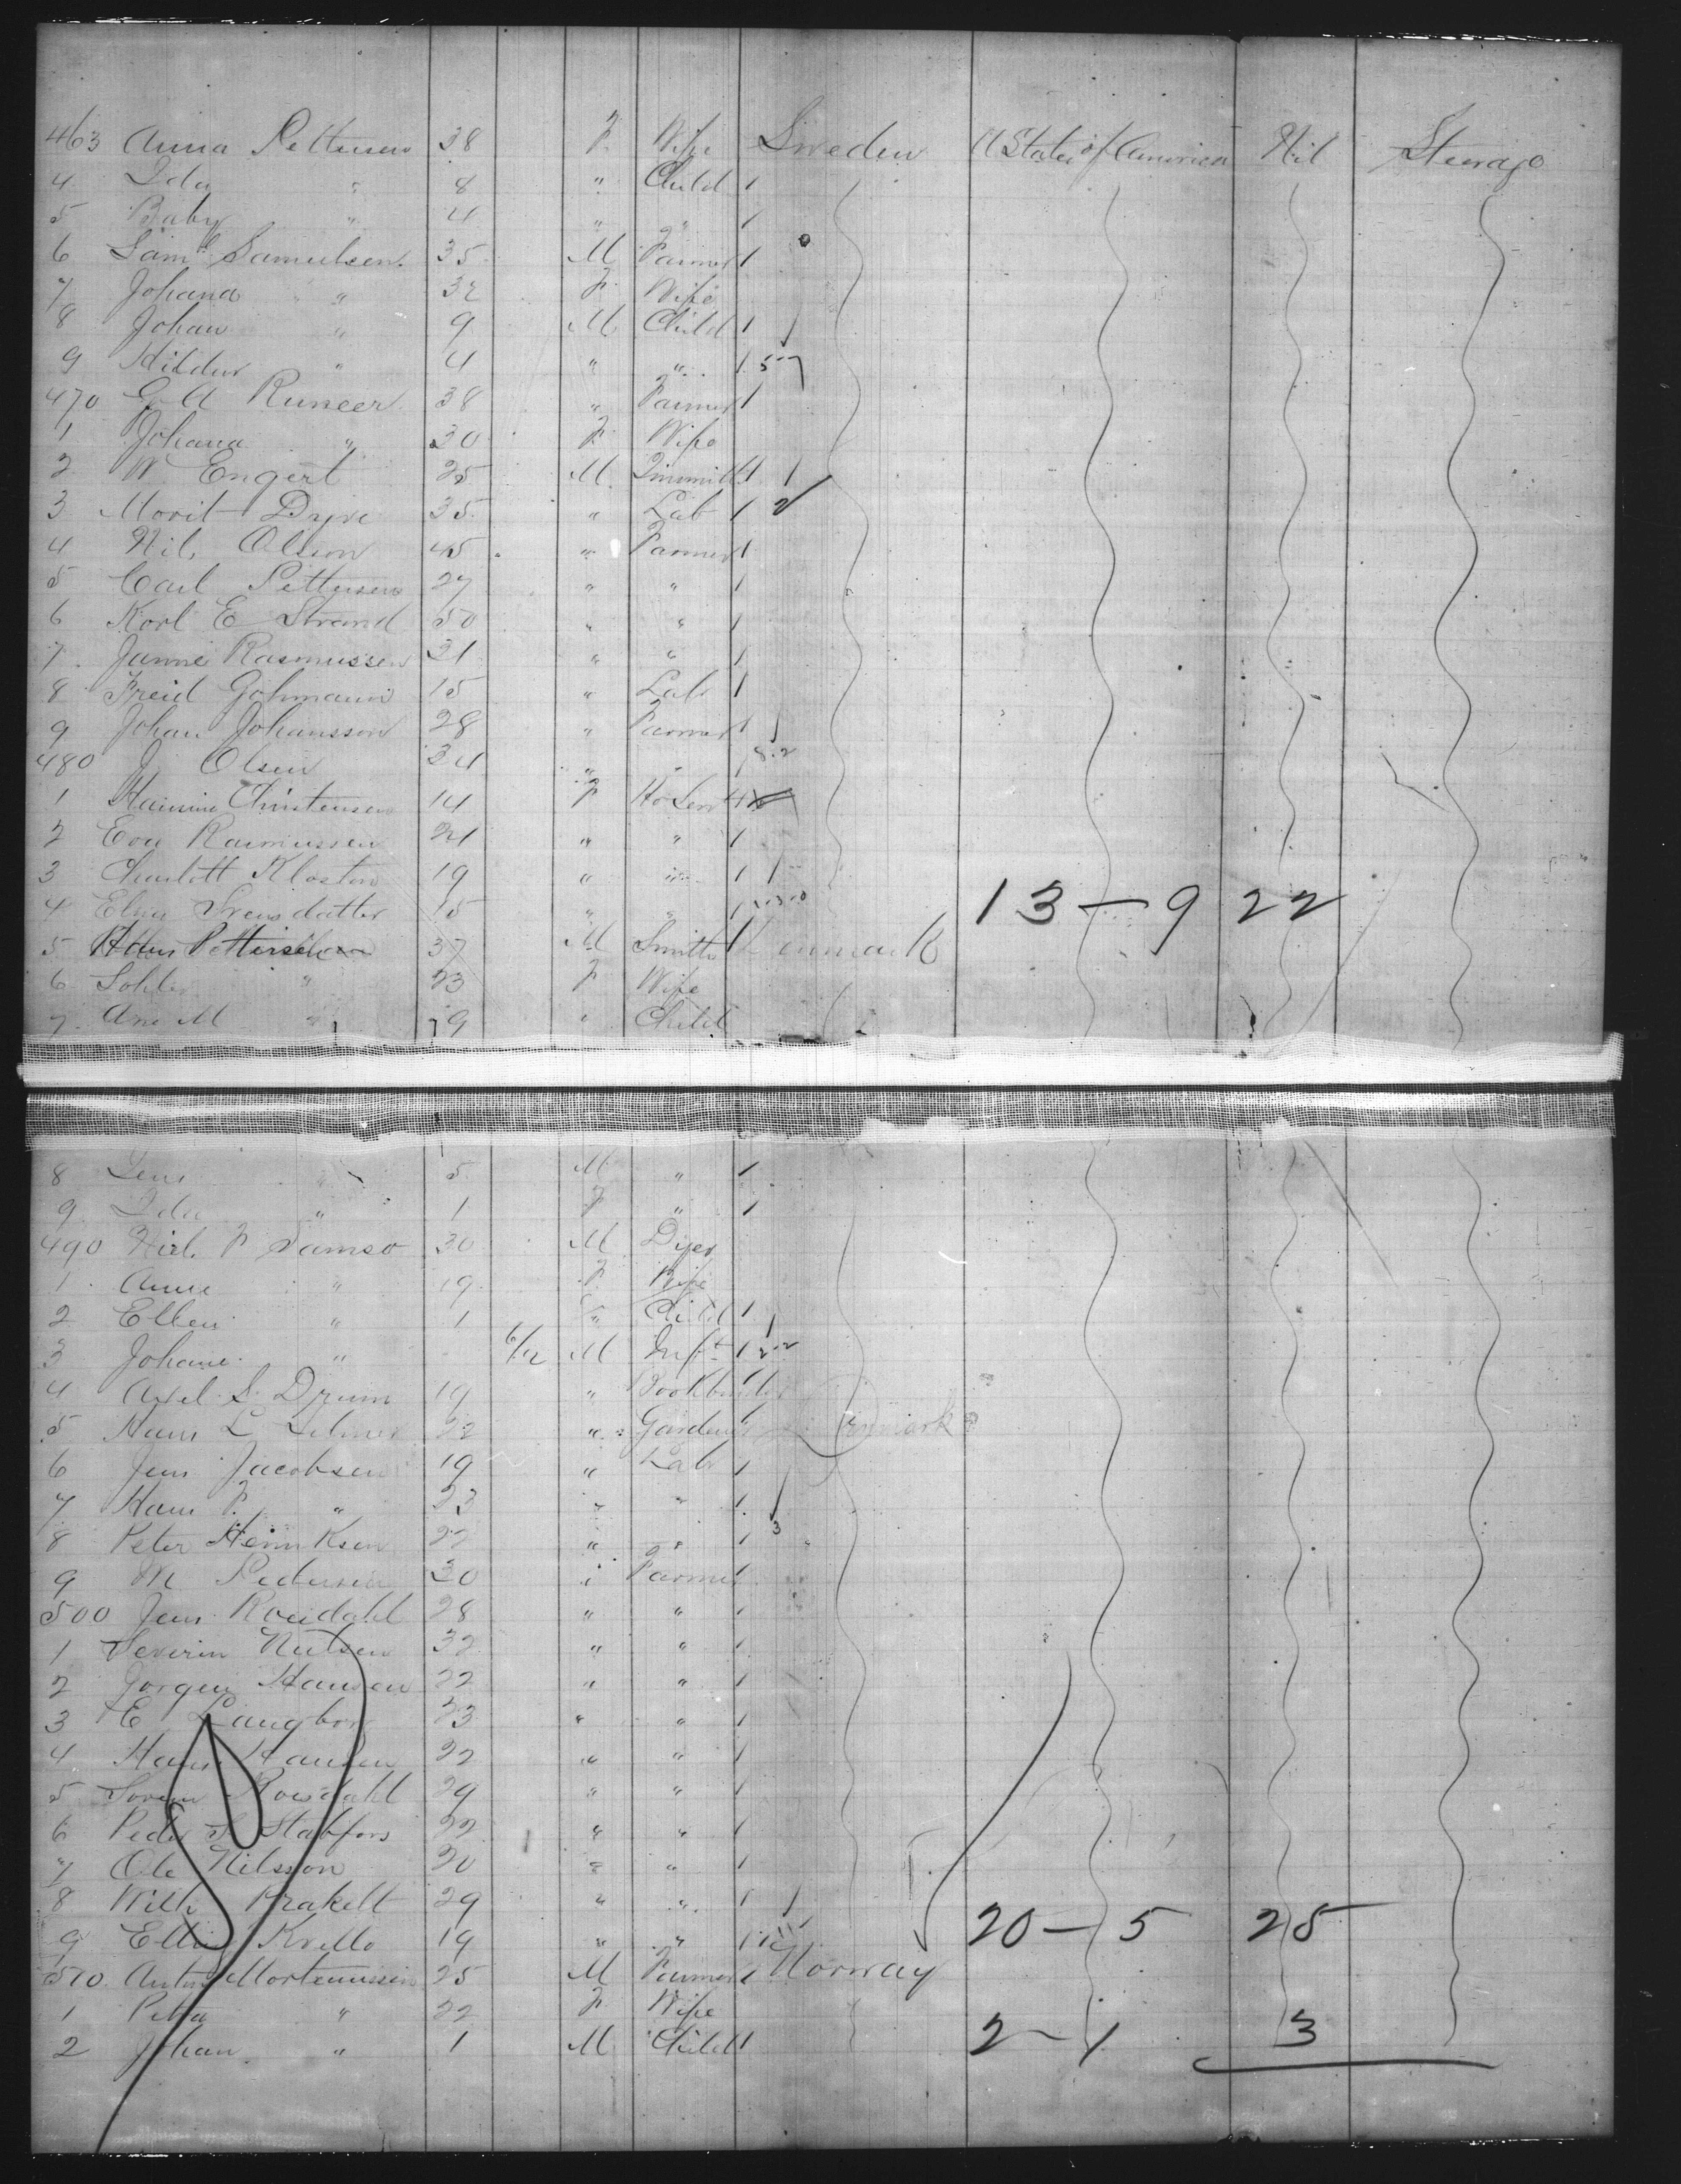 463 Anna Pettersen 38 F. Wife Sweden U States of America Nil Steerage
4 Ida " 8 " Child 1
5 Baby " 4 " " 1
6 Saml Samuelsen 35 M Farmer 1
7 Johana " 32 F. Wife
8 Johan " 9 M Child 1
9 Hildur " 4 " " 1 5-7
470 G A Runeer 38 " Farmer 1
1 Johana " 30 F. Wife
2 W Engert 25 M 1 1
3 Morit Dyre 35 " Lab 1 2
4 Nils Olsson 45 " Farmer 1
5 Carl Pettersen 27 " " 1
6 Korl E Strand 50 " " 1
7 Janne Rasmussen 31 " " 1
8 Freid Gohmann 15 " Lab 1
9 Johan Johansson 28 " Farmer 1
480 J Olsen 34 " " 1 8-2
1 Christensen 14 F Ho Servt
2 Eva Rasmussen 21 " " 1
3 Charlott Kloster 19 " " 1 1
4 Elna Svensdatter 15 " " 1 13 - 9 22
5 Hans Pettersen 37 M Smith 1 Denmark
6 " 23 F Wife
7 Ane M " 9 " Child
8 Jens " 5 M " 1
9 Ida " 1 F " 1
490 Niels P Samso 30 M Dyer
1 Anne " 19 F. Wife
2 Ellen " 1 " Child 1
3 Johane " 6/12 M Inft 1 2-2
4 Axel S. Drum 19 " Bookbinder
5 Hans L 22 " Gardener Denmark
6 Jens Jacobsen 19 " Lab 1
7 Hans P. " 23 " " 1 3
8 Peter Henriksen 22 " " 1
9 M Pedersen 30 " Farmer 1
500 Jens Roeidahl 28 " " 1
1 Severin Nielsen 32 " " 1
2 Jorgen Hansen 22 " " 1
3 E Langborg 23 " " 1
4 Hans Hansen 22 " " 1
5 Soren 29 " " 1
6 Peder S Stabfors 22 " " 1
7 Ole Nilsson 20 " " 1
8 Wilh Krakelt 29 " " 1
9 Krello 19 " " 1 20 - 5 25
510 Anton Mortenussen 25 M Farmer 1 Norway
1 Petra " 22 F Wife
2 Johan " 1 M Child 1 2 - 1 3